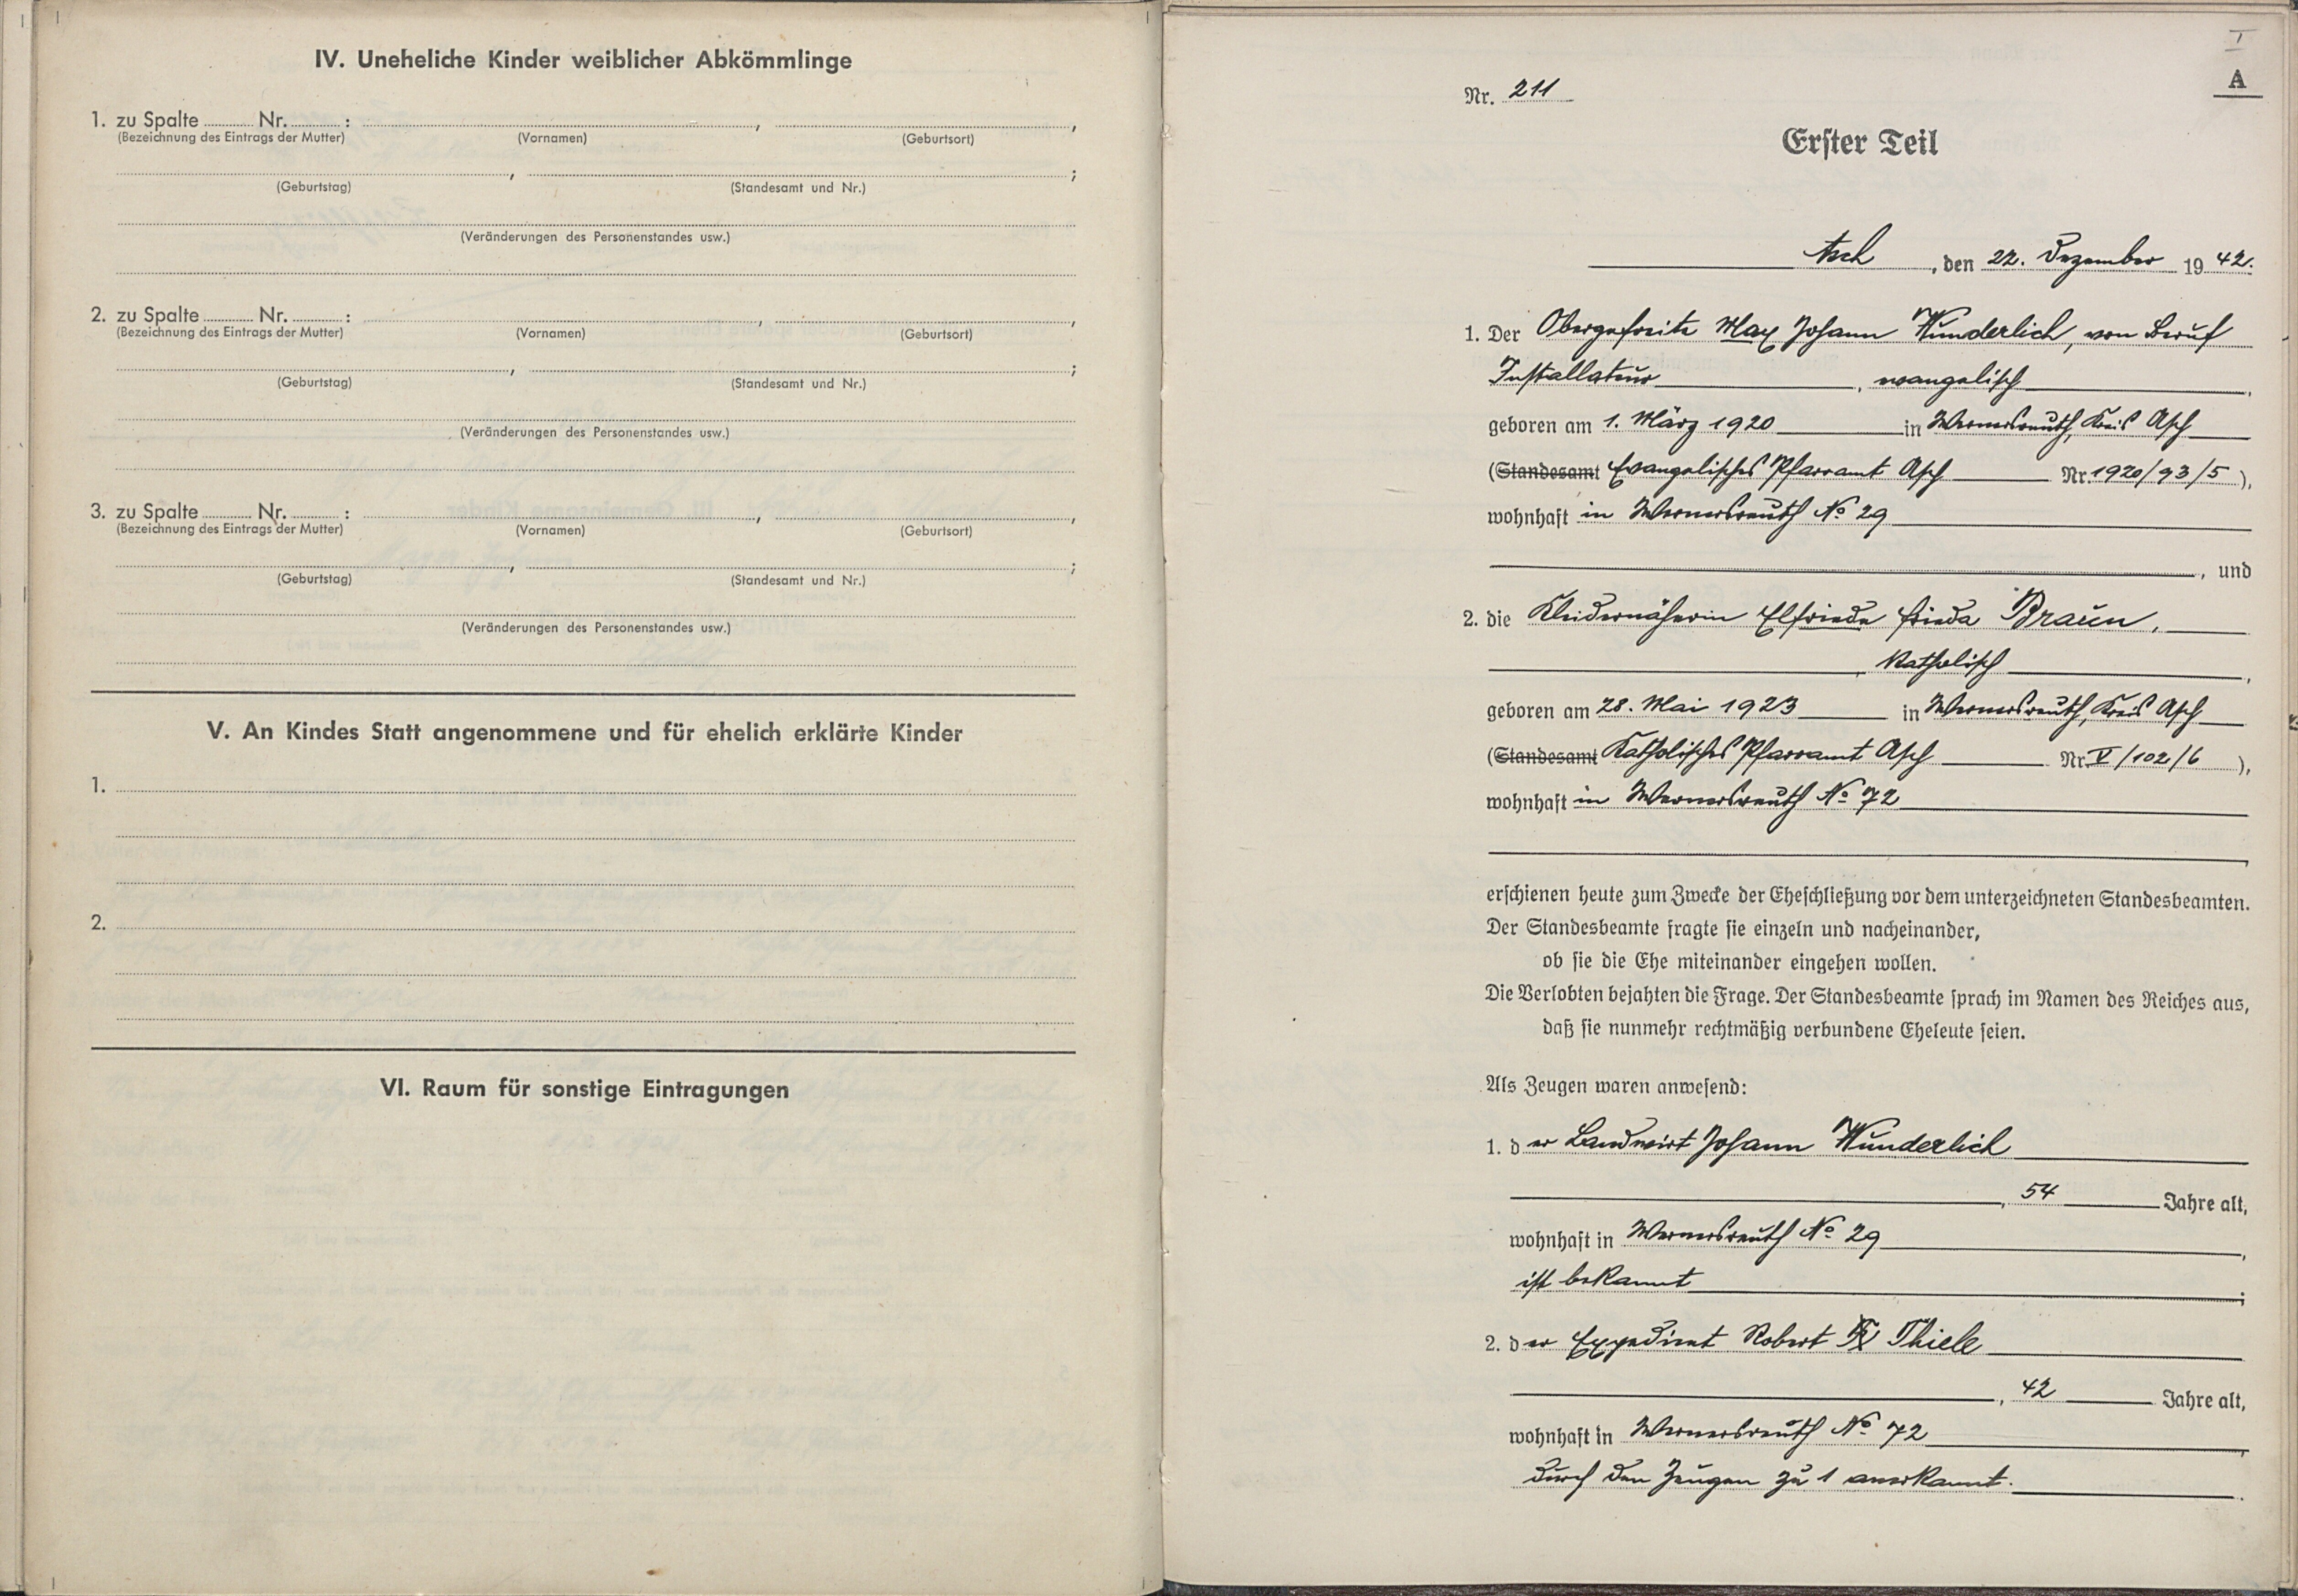 IV. Uneheliche Kinder weiblicher Abkömmlinge
1. zu Spalte ........ Nr. ........ : ........ , ........ ,
(Bezeichnung des Eintrags der Mutter) (Vornamen) (Geburtsort)
........ , ........ ;
(Geburtstag) (Standesamt und Nr.)
(Veränderungen des Personenstandes usw.)
2. zu Spalte ........ Nr. ........ : ........ , ........ ,
(Bezeichnung des Eintrags der Mutter) (Vornamen) (Geburtsort)
........ , ........ ;
(Geburtstag) (Standesamt und Nr.)
(Veränderungen des Personenstandes usw.)
3. zu Spalte ........ Nr. ........ : ........ , ........ ,
(Bezeichnung des Eintrags der Mutter) (Vornamen) (Geburtsort)
........ , ........ ;
(Geburtstag) (Standesamt und Nr.)
(Veränderungen des Personenstandes usw.)
V. An Kindes Statt angenommene und für ehelich erklärte Kinder
1.
2.
VI. Raum für sonstige Eintragungen
I
A
Nr. 211
Erster Teil
Asch, den 22. Dezember 1942.
1. Der Obergefreite Max Johann Wunderlich, von Beruf
Installateur, evangelisch,
geboren am 1. März 1920 in Wernersreuth, Kreis Asch
(Standesamt Evangelisches Pfarramt Asch Nr. 1920/93/5),
wohnhaft in Wernersreuth No 29
, und
2. die Kleidernäherin Elfriede Frieda Braun,
, katholisch,
geboren am 28. Mai 1923 in Wernersreuth, Kreis Asch
(Standesamt Katholisches Pfarramt Asch Nr. V/102/6),
wohnhaft in Wernersreuth No 72
,
erschienen heute zum Zwecke der Eheschließung vor dem unterzeichneten Standesbeamten.
Der Standesbeamte fragte sie einzeln und nacheinander,
ob sie die Ehe miteinander eingehen wollen.
Die Verlobten bejahten die Frage. Der Standesbeamte sprach im Namen des Reiches aus,
daß sie nunmehr rechtmäßig verbundene Eheleute seien.
Als Zeugen waren anwesend:
1. der Landwirt Johann Wunderlich
, 54 Jahre alt,
wohnhaft in Wernersreuth No 29,
ist bekannt;
2. der Expedient Robert Thiele
, 42 Jahre alt,
wohnhaft in Wernersreuth No 72,
durch den Zeugen zu 1 anerkannt.